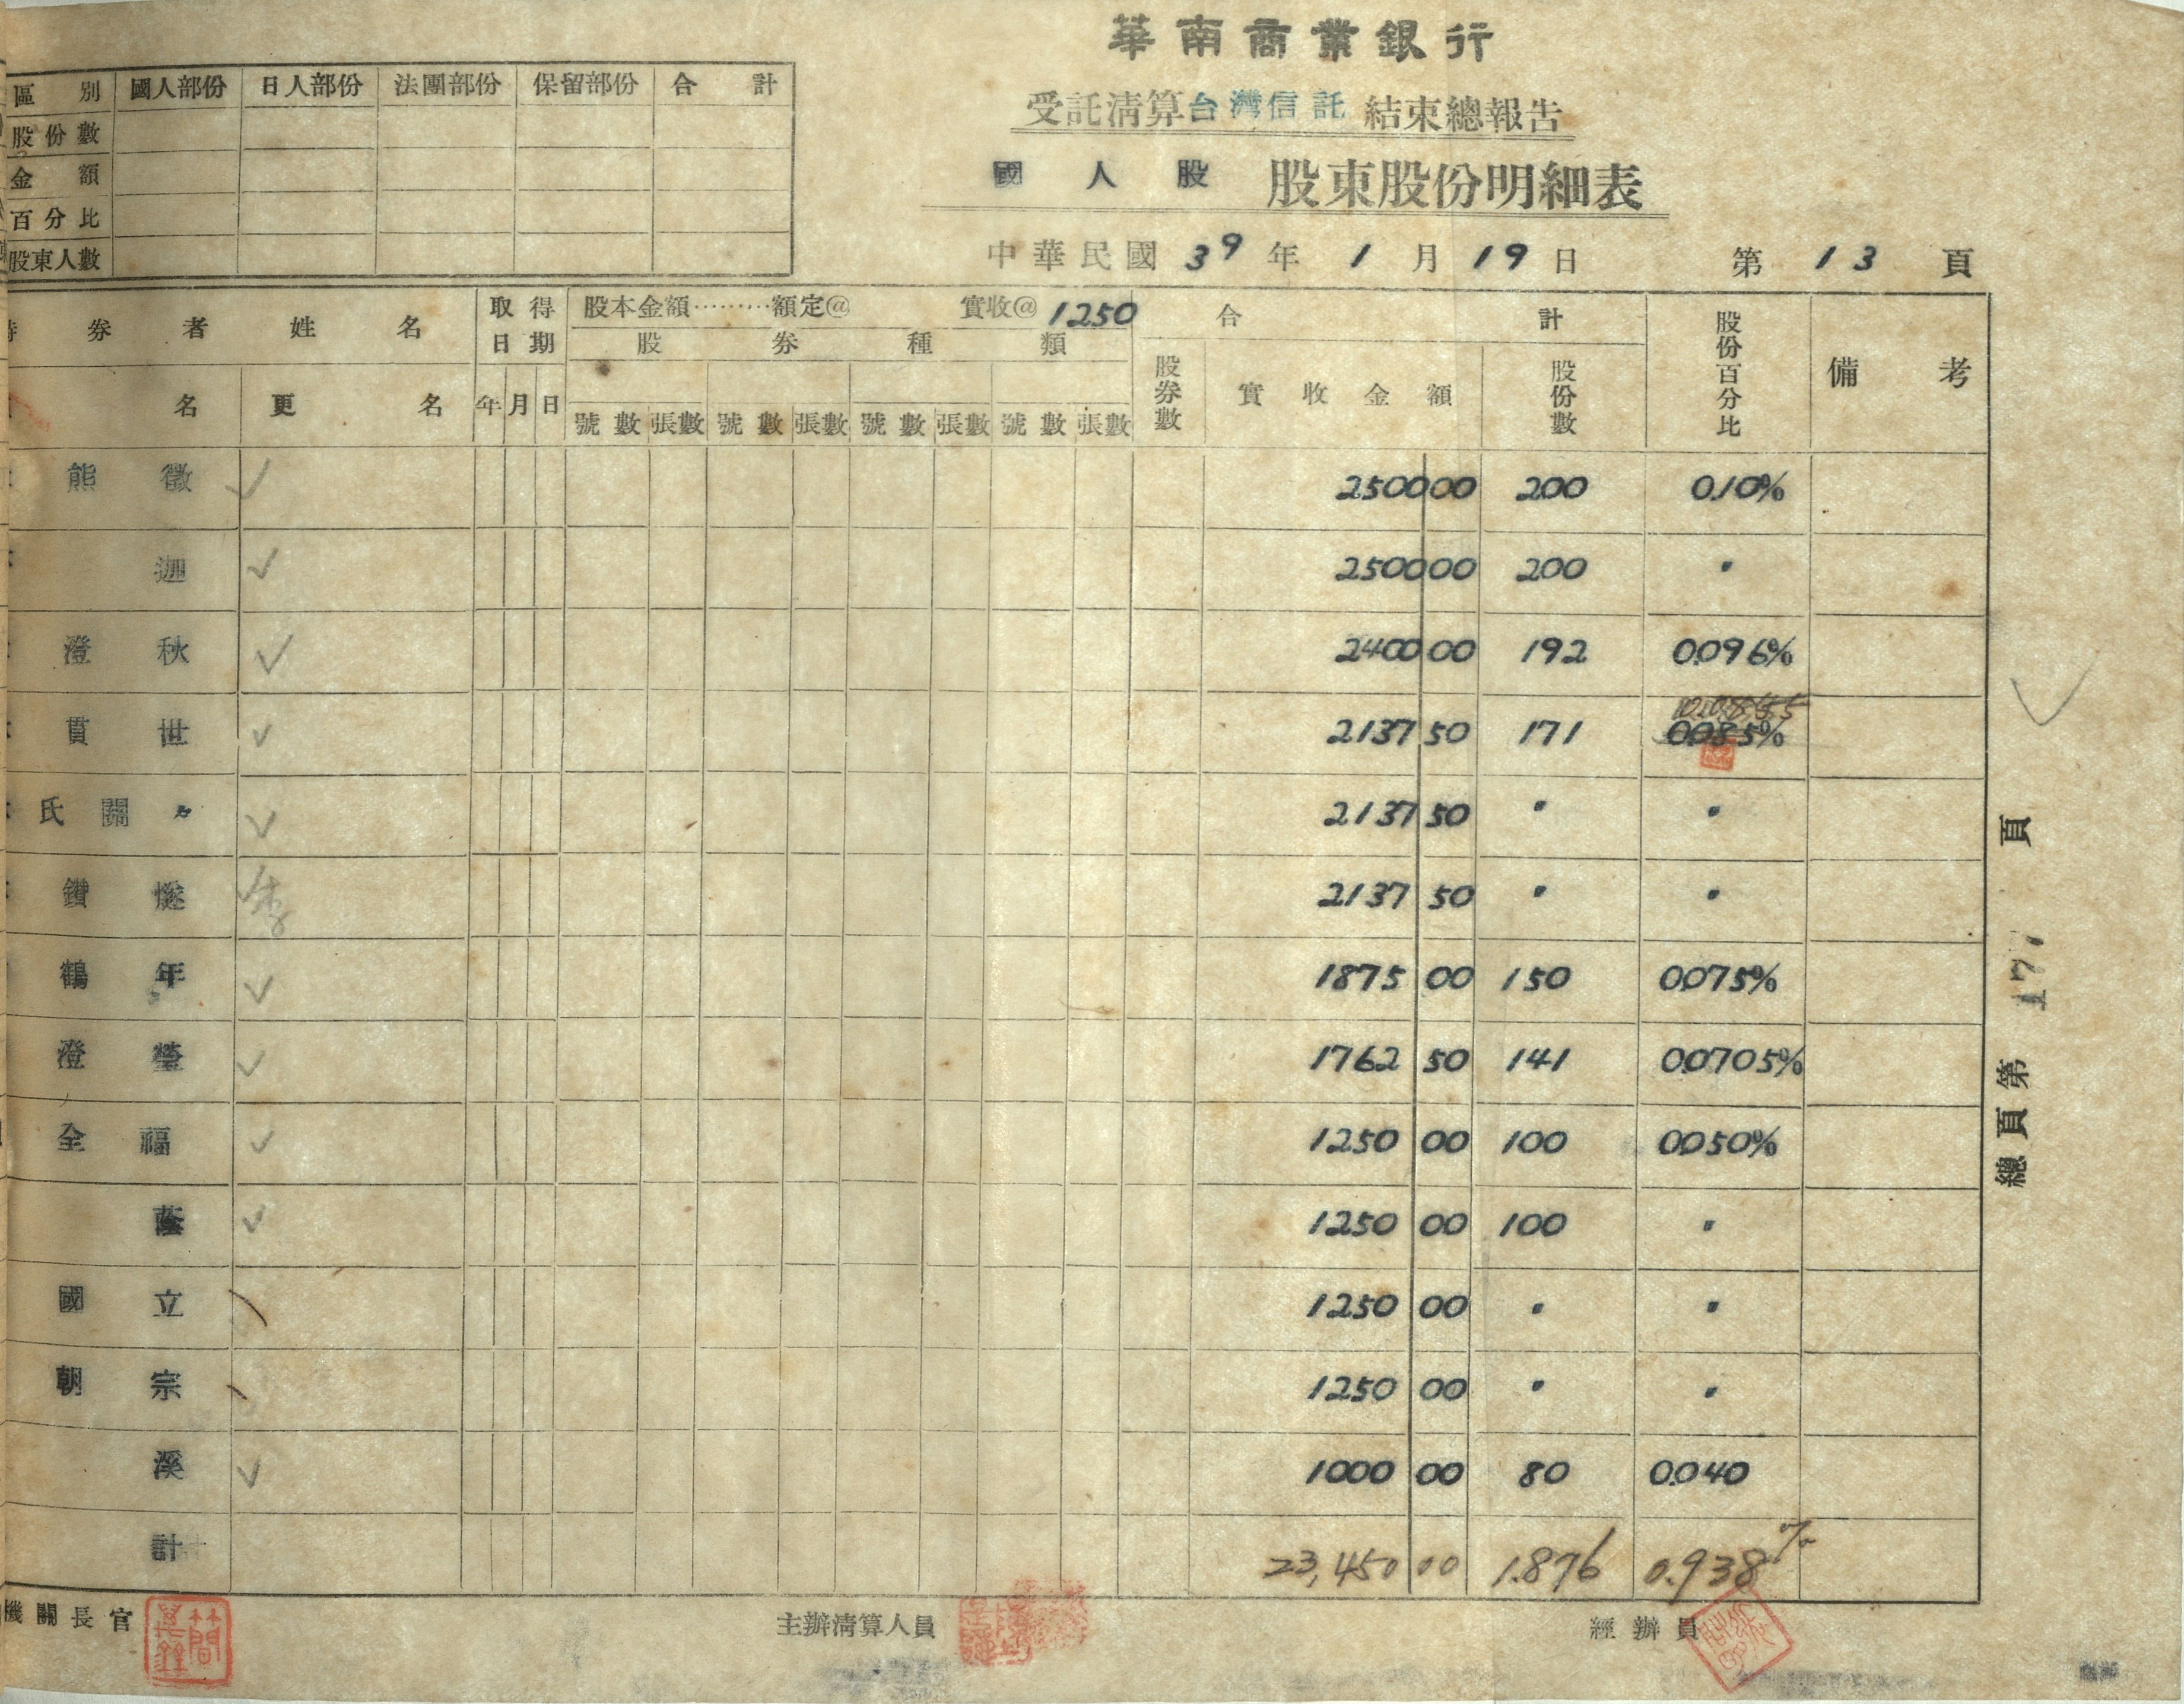 華南商業銀行
受託清算台灣信託結束總報告
國人股 股東股份明細表
中華民國39年1月19日 第13頁
區別 國人部份 日人部份 法團部份 保留部份 合計
股份數
金額
百分比
股東人數
券者姓名 取得日期 股本金額………額定@ 實收@1250 合計 股份百分比 備考
股券種類
名 更名 年 月 日 號數 張數 號數 張數 號數 張數 號數 張數 股券數 實收金額 股份數
熊徵 ✓ 2500 00 200 0.10%
迦 ✓ 2500 00 200 〃
澄秋 ✓ 2400 00 192 0.096%
貫世 ✓ 2137 50 171 0.0855 0.085%
氏關〃 ✓ 2137 50 〃 〃
鑽 ✓ 李 2137 50 〃 〃
鶴年 ✓ 1875 00 150 0.075%
澄瑩 ✓ 1762 50 141 0.0705%
全福 ✓ 1250 00 100 0.050%
✓ 1250 00 100 〃
國立 1250 00 〃 〃
朝宗 1250 00 〃 〃
溪 ✓ 1000 00 80 0.040
計 23,450 00 1.876 0.938%
機關長官 主辦清算人員 經辦員
總頁第 177 頁